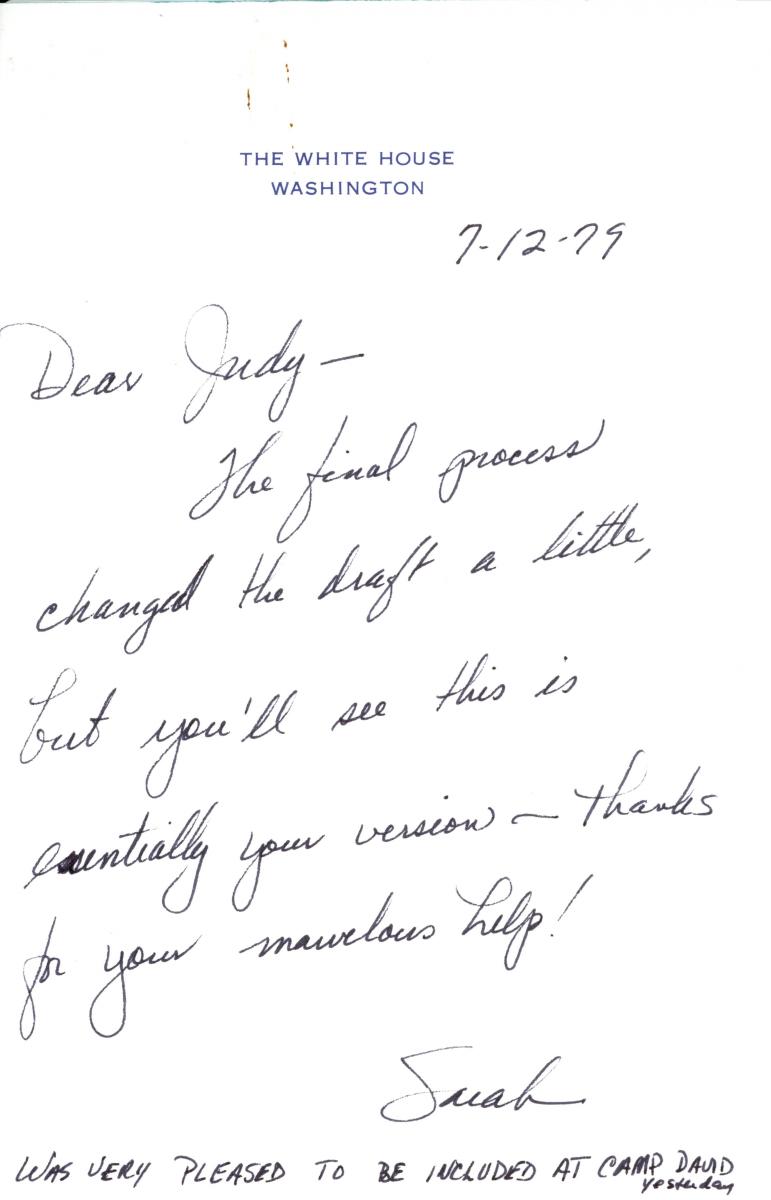 THE WHITE HOUSE
WASHINGTON
7-12-79
Dear Judy —
The final process
changed the draft a little,
but you'll see this is
essentially your version — thanks
for your marvelous help!
Sarah
WAS VERY PLEASED TO BE INCLUDED AT CAMP DAVID
yesterday